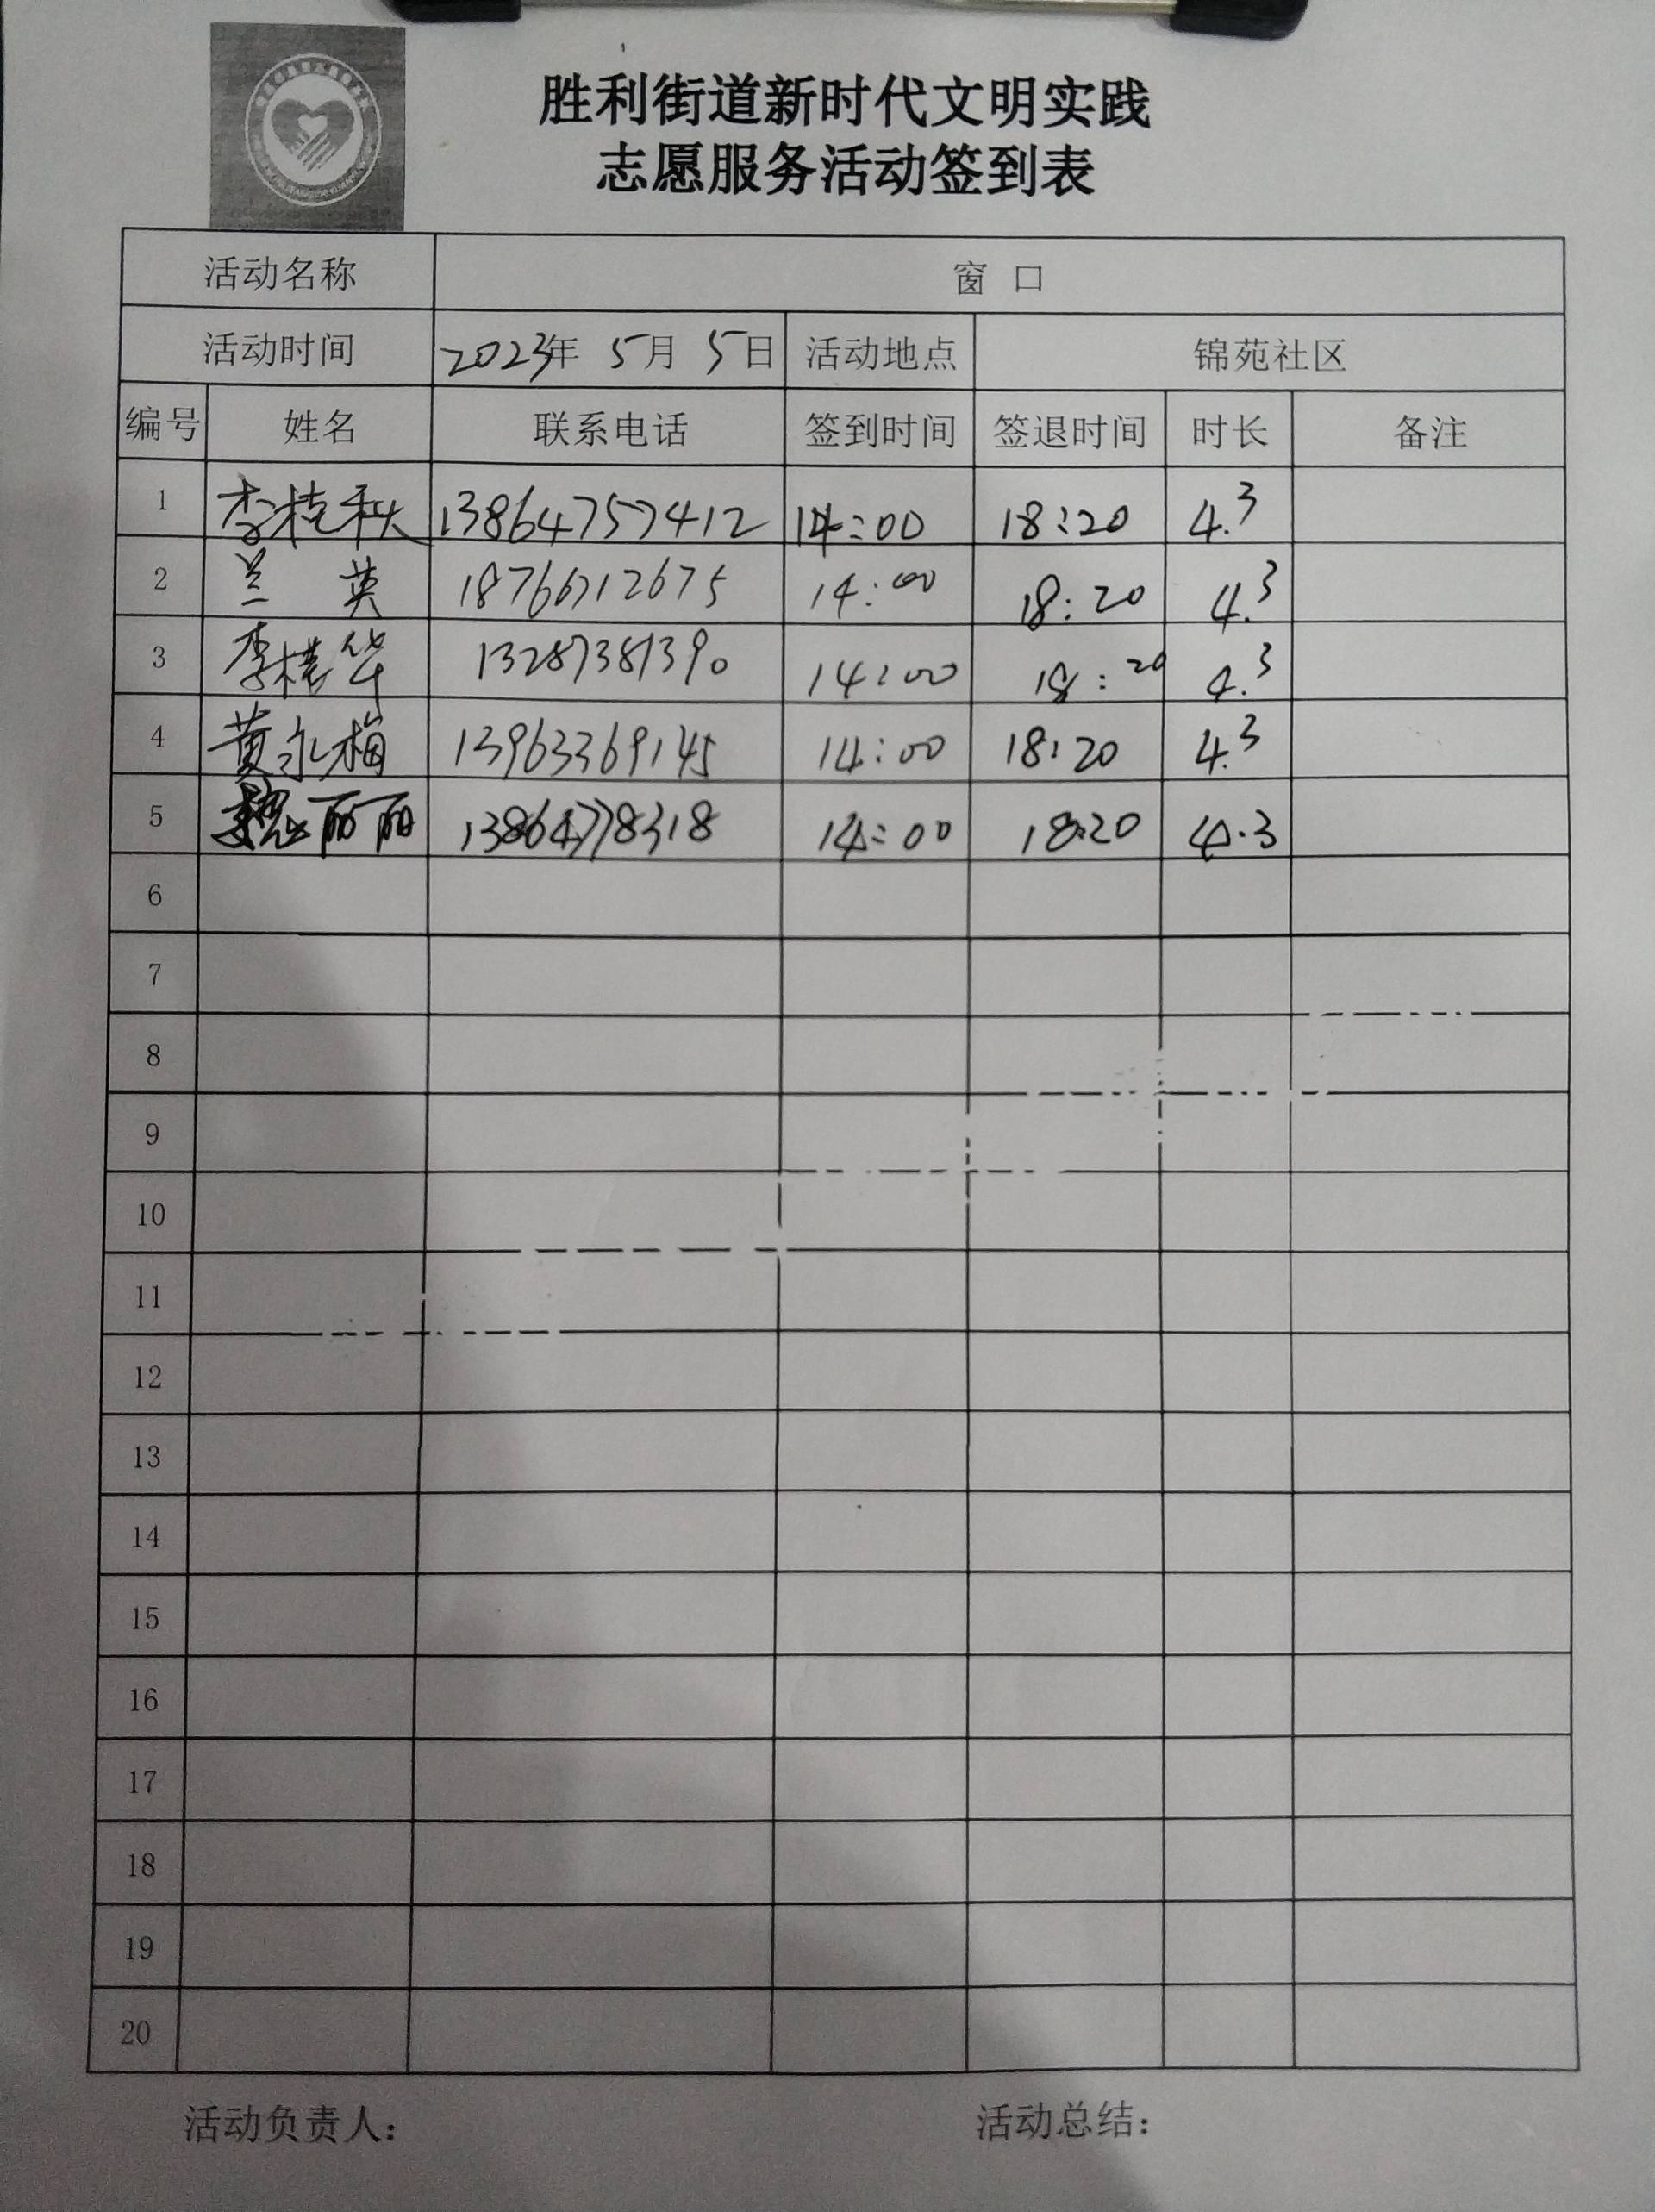 胜利街道新时代文明实践
志愿服务活动签到表
活动名称 窗 口
活动时间 2023年 5月 5日 活动地点 锦苑社区
编号 姓名 联系电话 签到时间 签退时间 时长 备注
1 李桂秋 13864757412 14:00 18:20 4.3
2 兰 英 18766712675 14:00 18:20 4.3
3 李桂华 13287381390 14:00 18:20 4.3
4 黄永梅 13963369145 14:00 18:20 4.3
5 魏丽丽 13864778318 14:00 18:20 4.3
6
7
8
9
10
11
12
13
14
15
16
17
18
19
20
活动负责人: 活动总结: